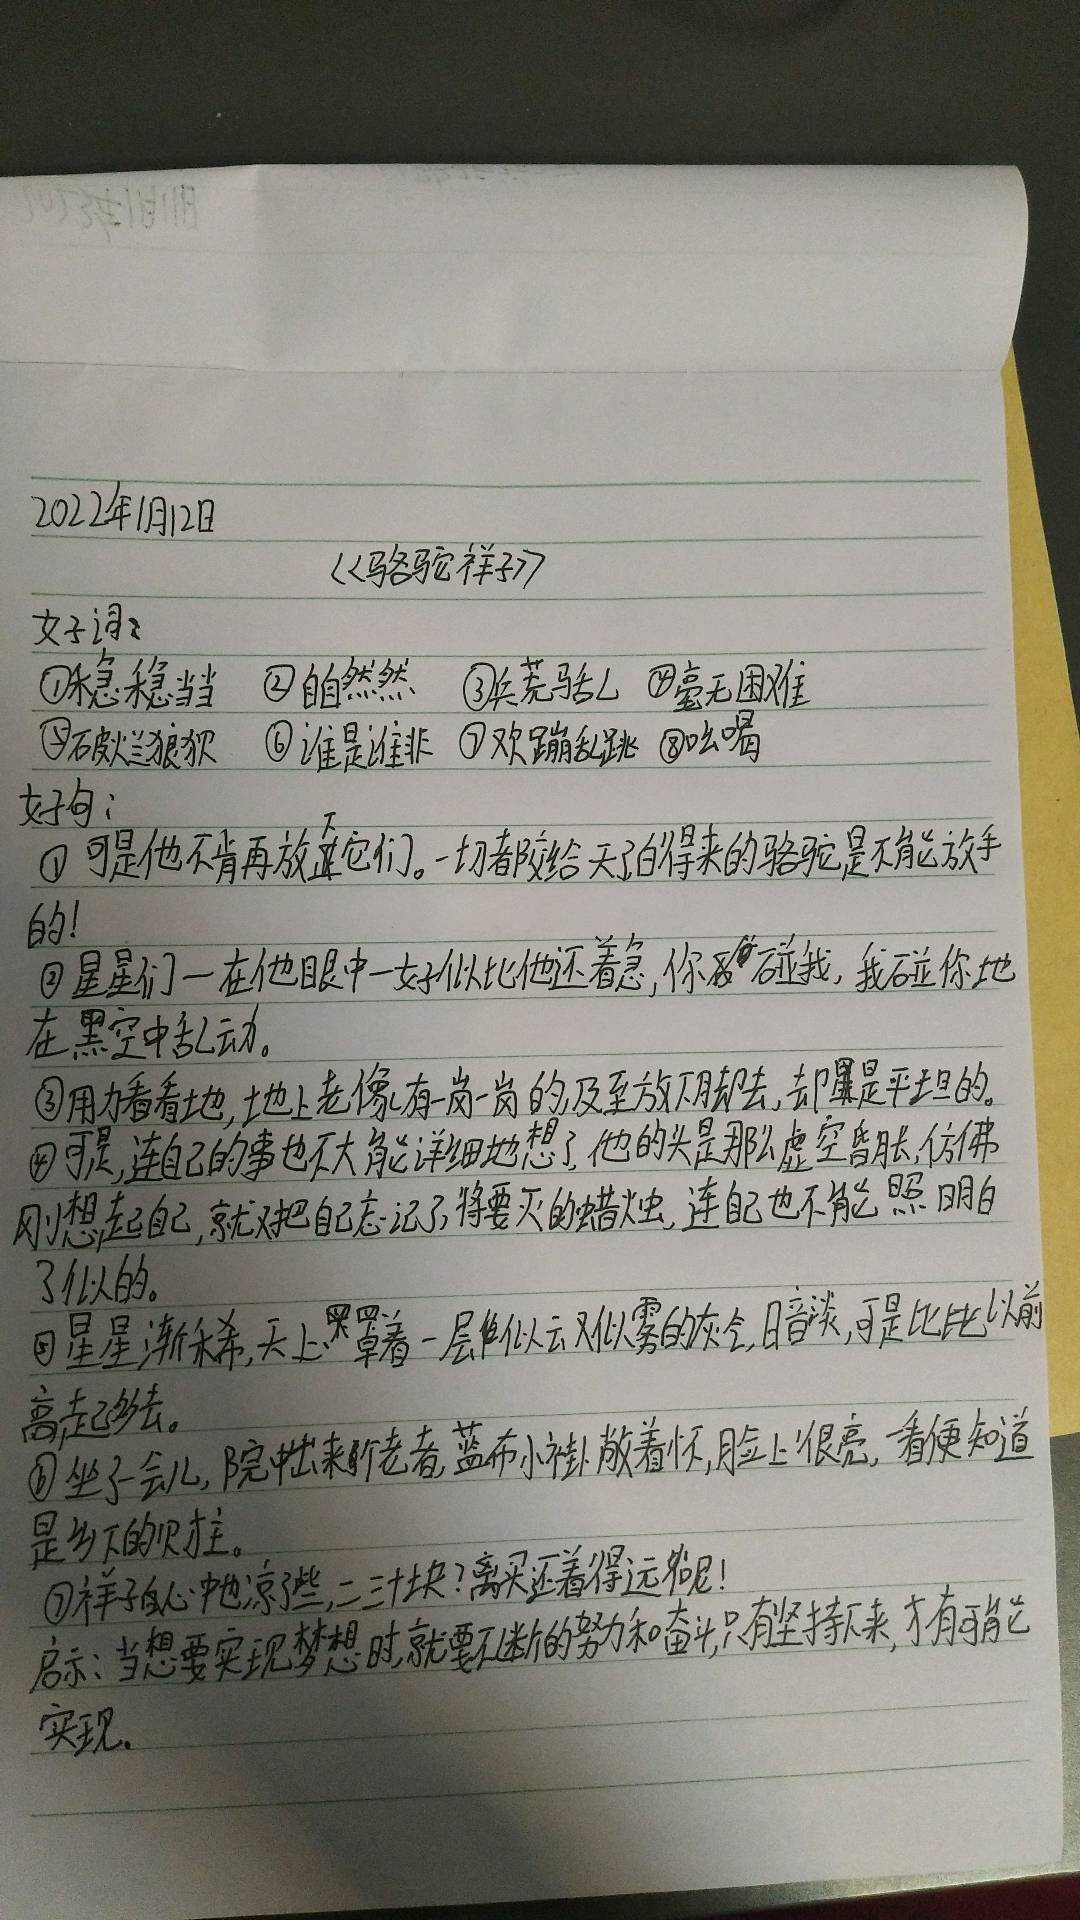 2022年1月12日
《骆驼祥子》
好词:
①稳稳当当 ②自然然 ③兵荒马乱 ④毫无困难
⑤破烂狼狈 ⑥谁是谁非 ⑦欢蹦乱跳 ⑧吆喝
好句:
①可是他不肯再放下它们。一切都交给天了白得来的骆驼是不能放手
的!
②星星们一在他眼中一好似比他还着急,你碰我,我碰你地
在黑空中乱动。
③用力看看地,地上老像有一岗一岗的,及至放下脚去,却是平坦的。
④可是,连自己的事也不大能详细地想了,他的头是那么虚空昏胀,仿佛
刚想起自己,就又把自己忘记了,将要灭的蜡烛,连自己也不能照明白
了似的。
⑤星星渐稀,天上罩着一层似云又似雾的灰气,暗淡,可是比以前
高起多去。
⑥坐了一会儿,院中出来个老者,蓝布小褂敞着怀,脸上很亮,一看便知道
是乡下的财主。
⑦祥子心中也凉了些,二三十块?离买还着得远呢!
启示:当想要实现梦想时,就要不断的努力和奋斗,只有坚持下来,才有可能
实现。